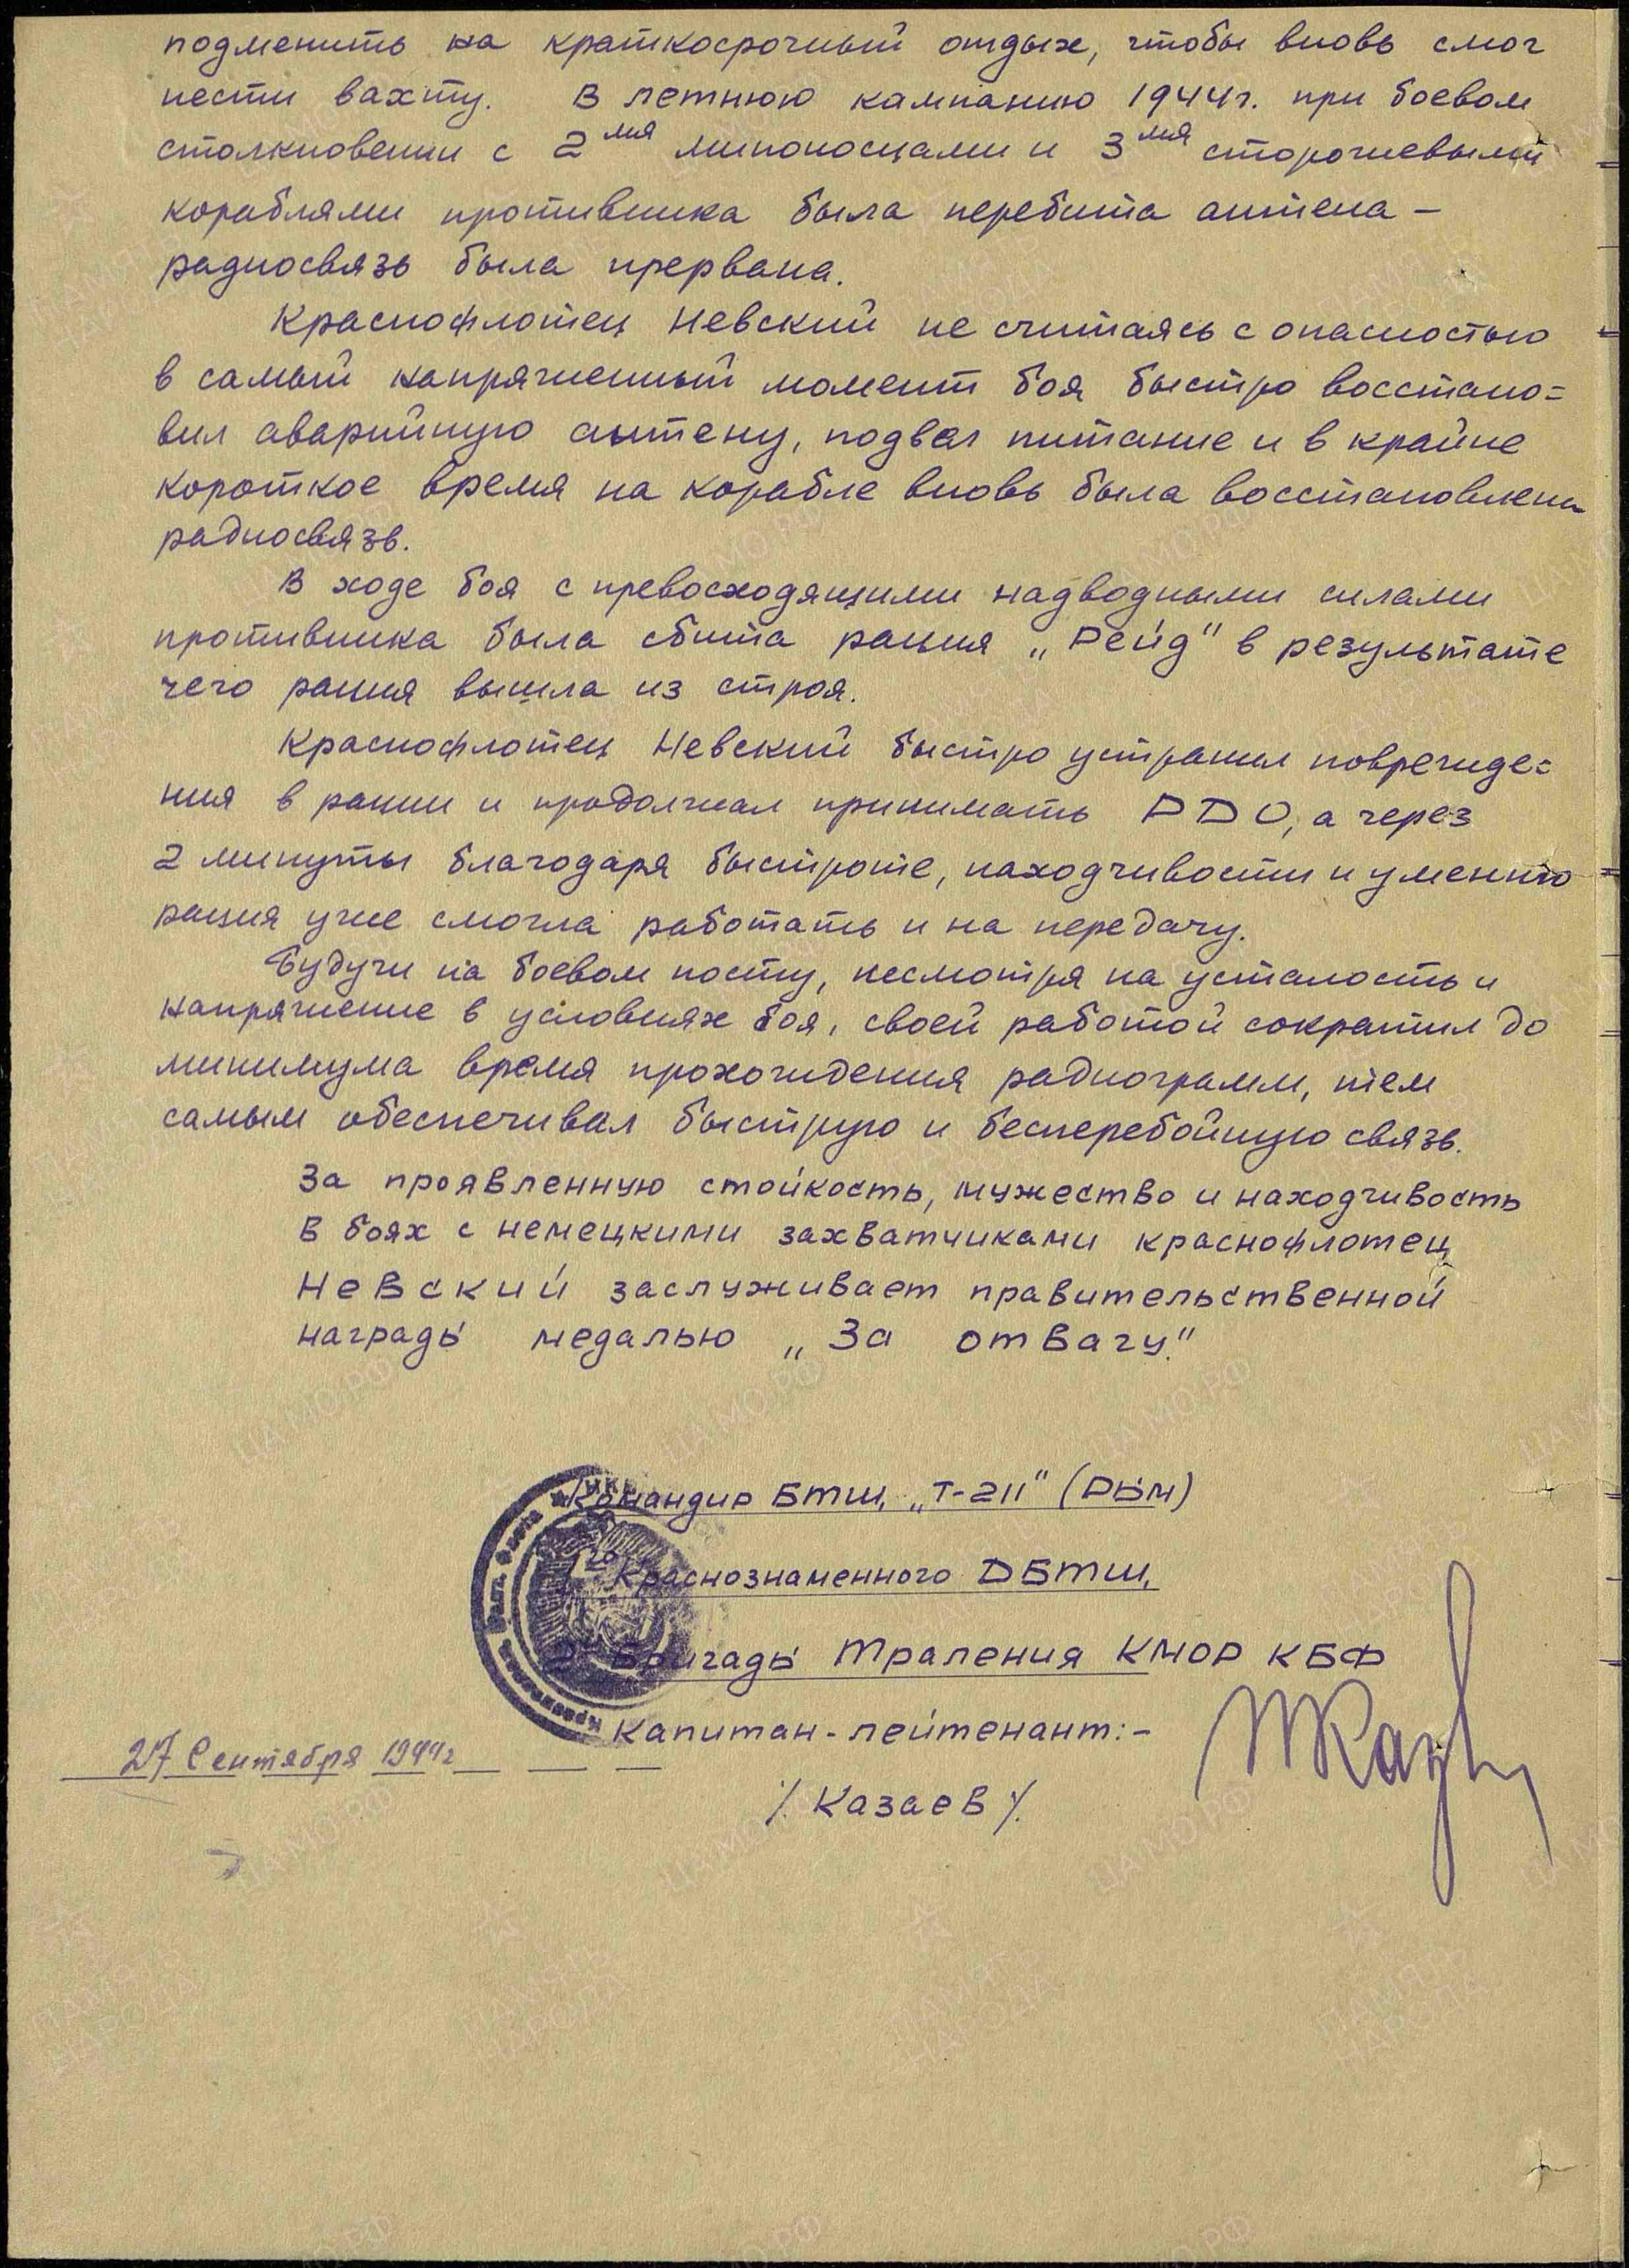 подменить на краткосрочный отдых, чтобы вновь смог
нести вахту. В летнюю кампанию 1944г. при боевом
столкновении с 2мя миноносцами и 3мя сторожевыми
кораблями противника была перебита антена –
радиосвязь была прервана.
Краснофлотец Невский не считаясь с опасностью
в самый напряженный момент боя быстро восстано=
вил аварийную антену, подвел питание и в крайне
короткое время на корабле вновь была восстановлена
радиосвязь.
В ходе боя с превосходящими надводными силами
противника была сбита рация „Рейд" в результате
чего рация вышла из строя.
Краснофлотец Невский быстро устранил поврежде=
ния в рации и продолжал принимать РДО, а через
2 минуты благодаря быстроте, находчивости и умению
рация уже смогла работать и на передачу.
Будучи на боевом посту, несмотря на усталость и
напряжение в условиях боя, своей работой сократил до
минимума время прохождения радиограмм, тем
самым обеспечивал быструю и бесперебойную связь.
За проявленную стойкость, мужество и находчивость
в боях с немецкими захватчиками краснофлотец
Невский заслуживает правительственной
награды медалью „За отвагу".
Командир БТЩ „Т-211" (РЫМ)
1го Краснознаменного ДБТЩ
2й Бригады Траления КМОР КБФ
Капитан-лейтенант:-
27 Сентября 1944г
/Казаев/.